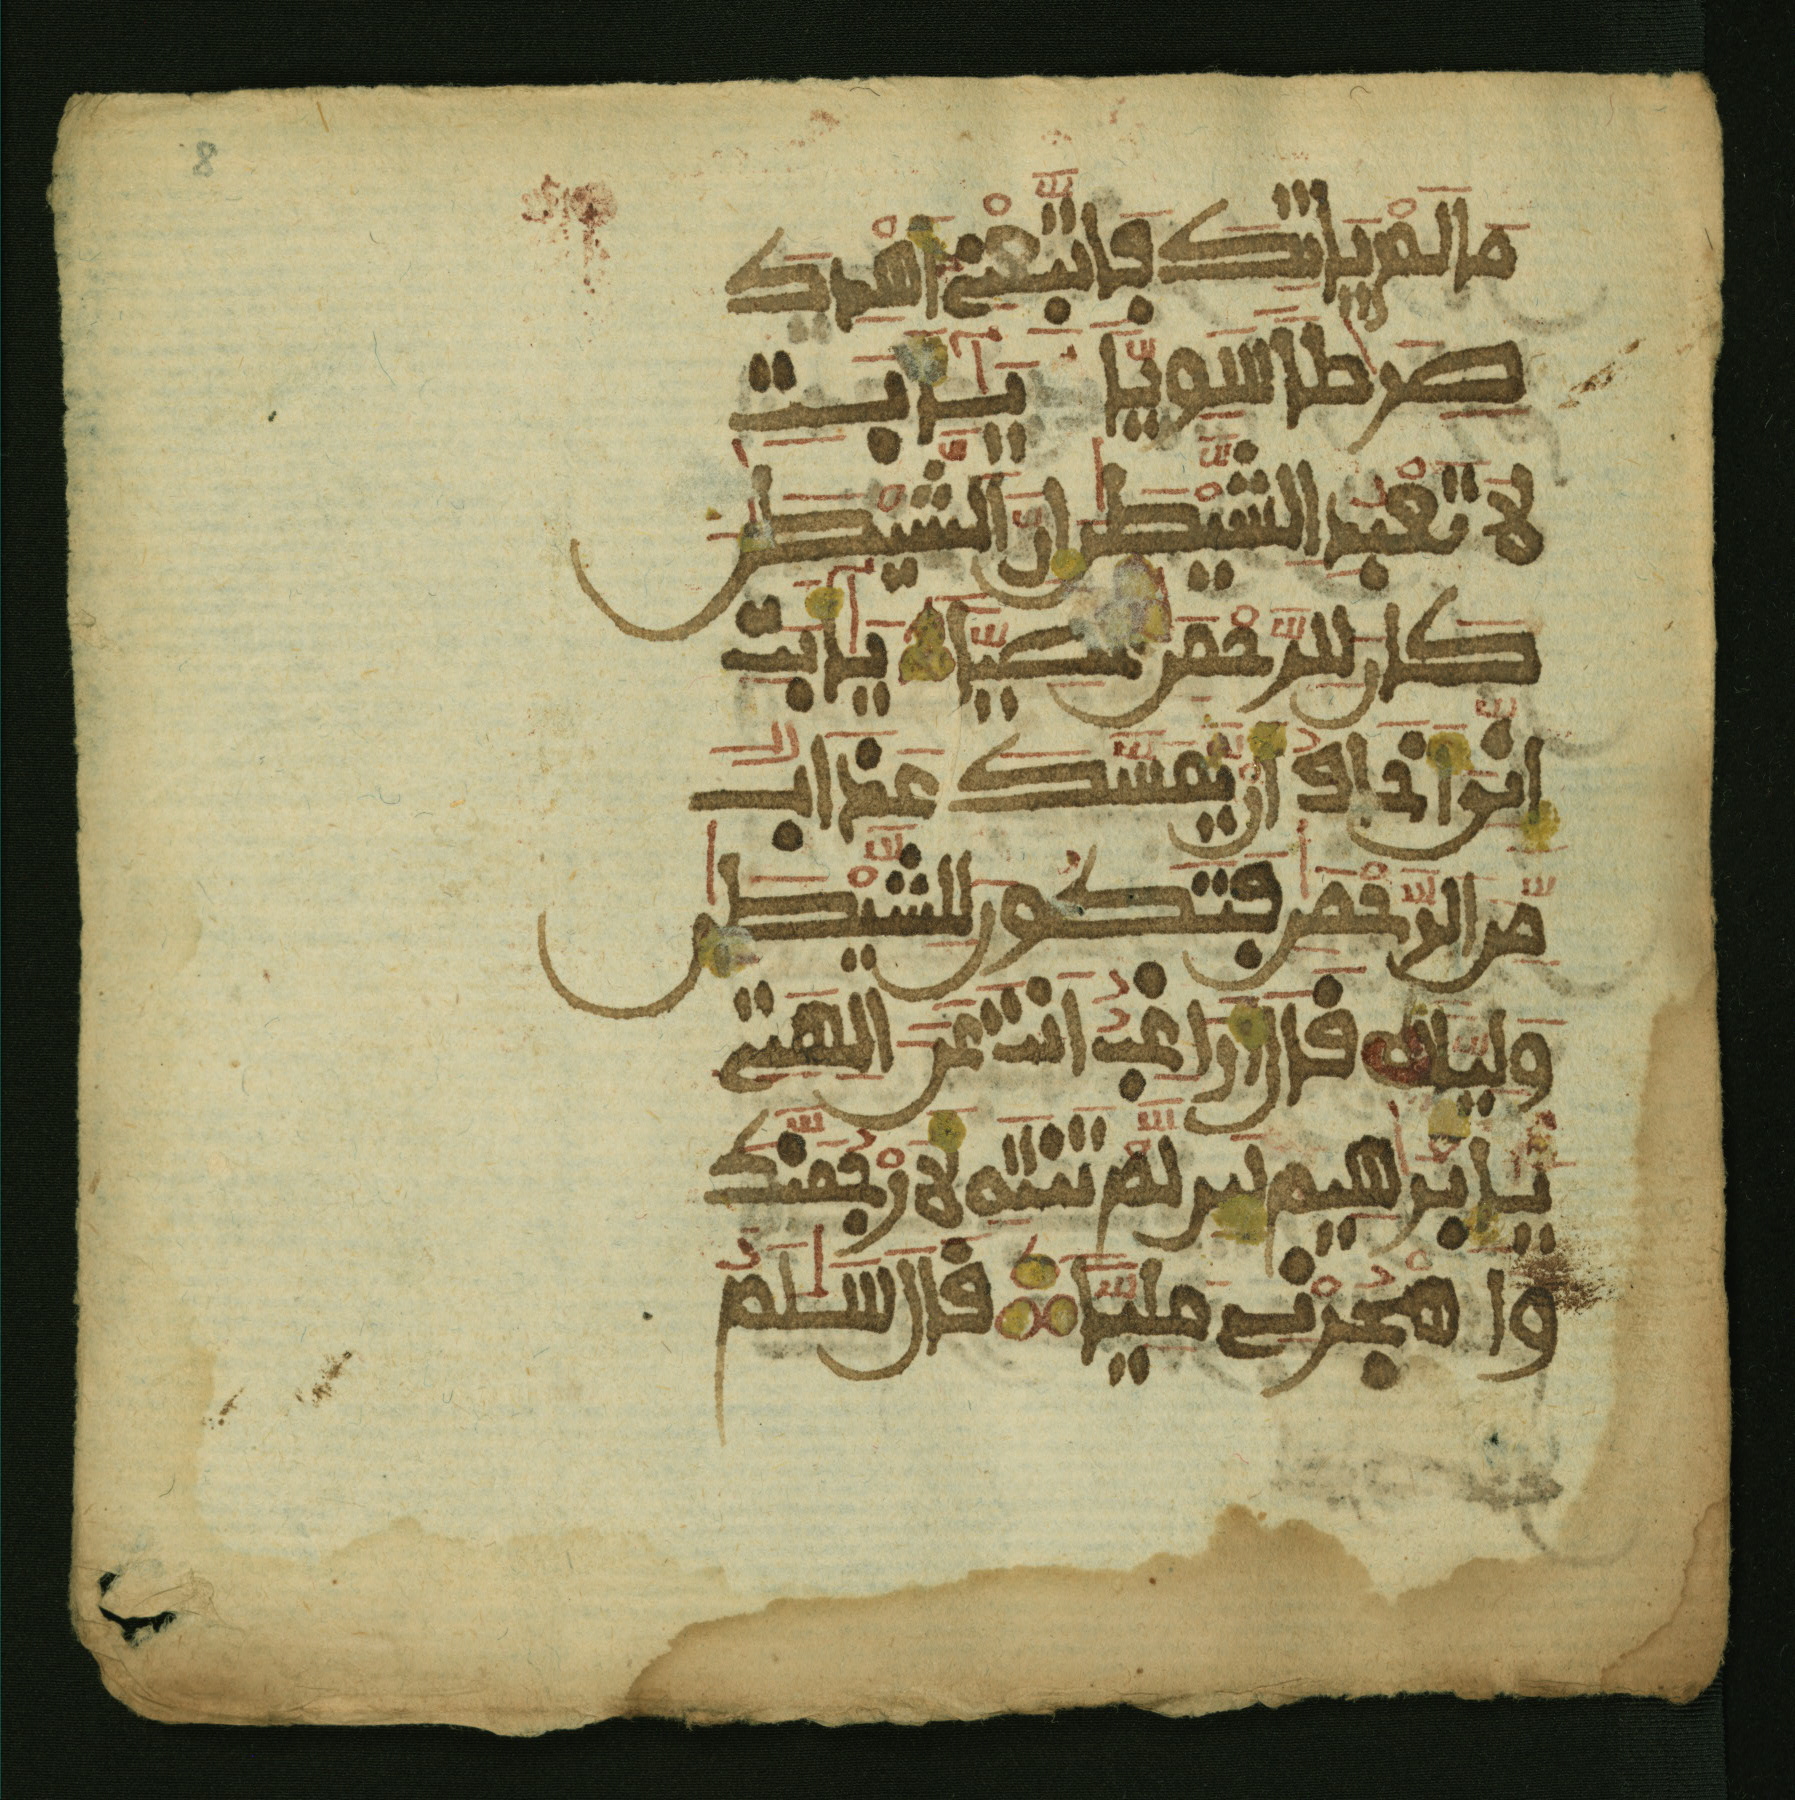 8
مَا لَمْ يَاتِكَ فَاتَّبِعْنِے أَهْدِكَ
صِرَٰطاً سَوِيّاً يَٰأَبَتِ
لَا تَعْبُدِ الشَّيْطَٰنَ إِنَّ الشَّيْطَٰنَ
كَانَ لِلرَّحْمَٰنِ عَصِيّاً يَٰأَبَتِ
إِنِّيَ أَخَافُ أَنْ يَّمَسَّكَ عَذَابٌ
مِّنَ الرَّحْمَٰنِ فَتَكُونَ لِلشَّيْطَٰنِ
وَلِيّاً قَالَ أَرَاغِبٌ أَنتَ عَنَ اٰلِهَتِے
يَٰإِبْرَٰهِيمُ لَئِن لَّمْ تَنتَهِ لَأَرْجُمَنَّكَ
وَاهْجُرْنِے مَلِيّاً قَالَ سَلَٰمٌ